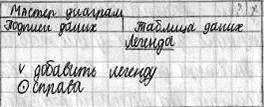 Мастер диаграм ? X
Подписи даных Таблица даных
Легенда
v добавить легенду
⊙ справа